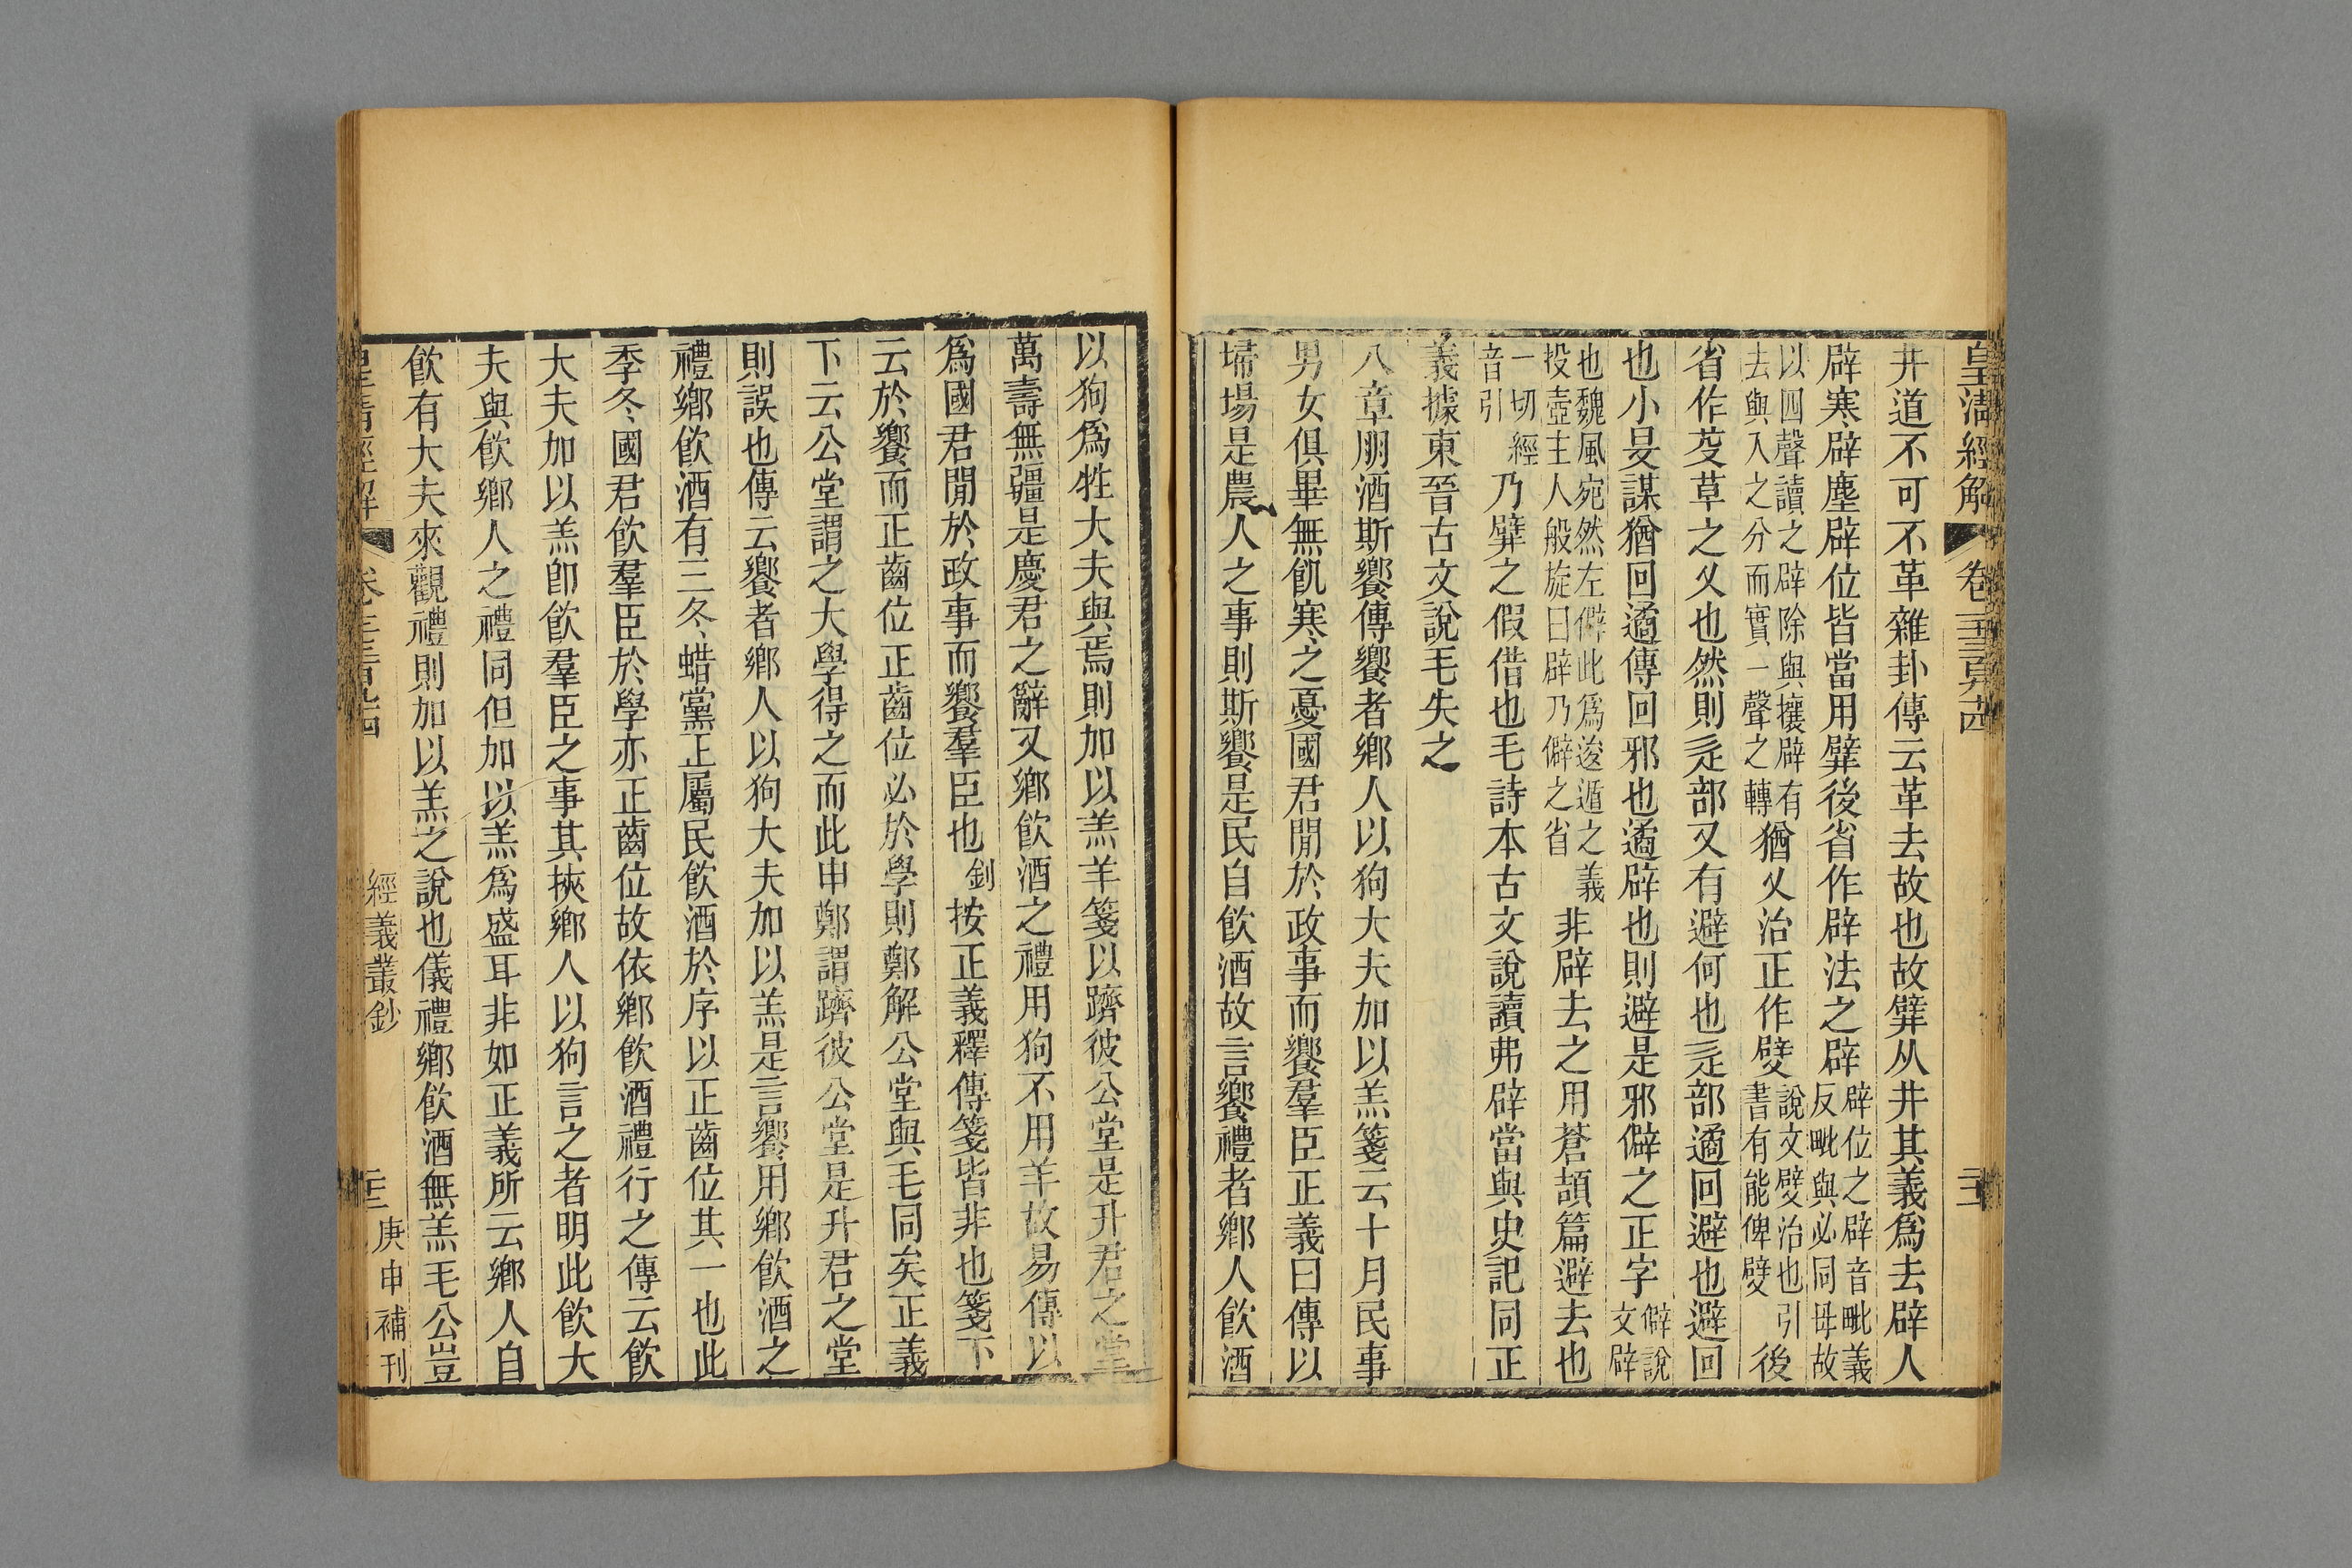 皇清經解 卷
井道不可不革雜卦傳云革去故也故擗从井其義爲去辟人
辟寒辟塵辟位皆當用擗後省作辟法之辟辟位之辟音毗義反毗與必同毋故
以四聲讀之辟除與攘辟有去與入之分而實一聲之轉猶乂治正作嬖說文嬖治也引書有能俾嬖後
省作芟草之乂也然則辵部又有避何也辵部遹回避也避回
也小旻謀猶回遹傳回邪也遹辟也則避是邪僻之正字僻說文辟
也魏風宛然左僻此爲逡遁之義投壺主人般旋曰辟乃僻之省非辟去之用蒼頡篇避去也
一切經音引乃擗之假借也毛詩本古文說讀弗辟當與史記同正
義據東晉古文說毛失之
八章朋酒斯饗傳饗者鄉人以狗大夫加以羔箋云十月民事
男女俱畢無飢寒之憂國君閒於政事而饗羣臣正義曰傳以
埽場是農人之事則斯饗是民自飲酒故言饗禮者鄉人飲酒
以狗爲牲大夫與焉則加以羔羊箋以躋彼公堂是升君之堂
萬壽無疆是慶君之辭又鄉飲酒之禮用狗不用羊故易傳以
爲國君閒於政事而饗羣臣也釗按正義釋傳箋皆非也箋下
云於饗而正齒位正齒位必於學則鄭解公堂與毛同矣正義
下云公堂謂之大學得之而此申鄭謂躋彼公堂是升君之堂
則誤也傳云饗者鄉人以狗大夫加以羔是言饗用鄉飲酒之
禮鄉飲酒有三冬蜡黨正屬民飲酒於序以正齒位其一也此
季冬國君飲羣臣於學亦正齒位故依鄉飲酒禮行之傳云飲
大夫加以羔卽飲羣臣之事其挾鄉人以狗言之者明此飲大
夫與飲鄉人之禮同但加以羔爲盛耳非如正義所云鄉人自
飲有大夫來觀禮則加以羔之說也儀禮鄉飲酒無羔毛公豈
皇清經解 經義叢鈔 庚申補刊